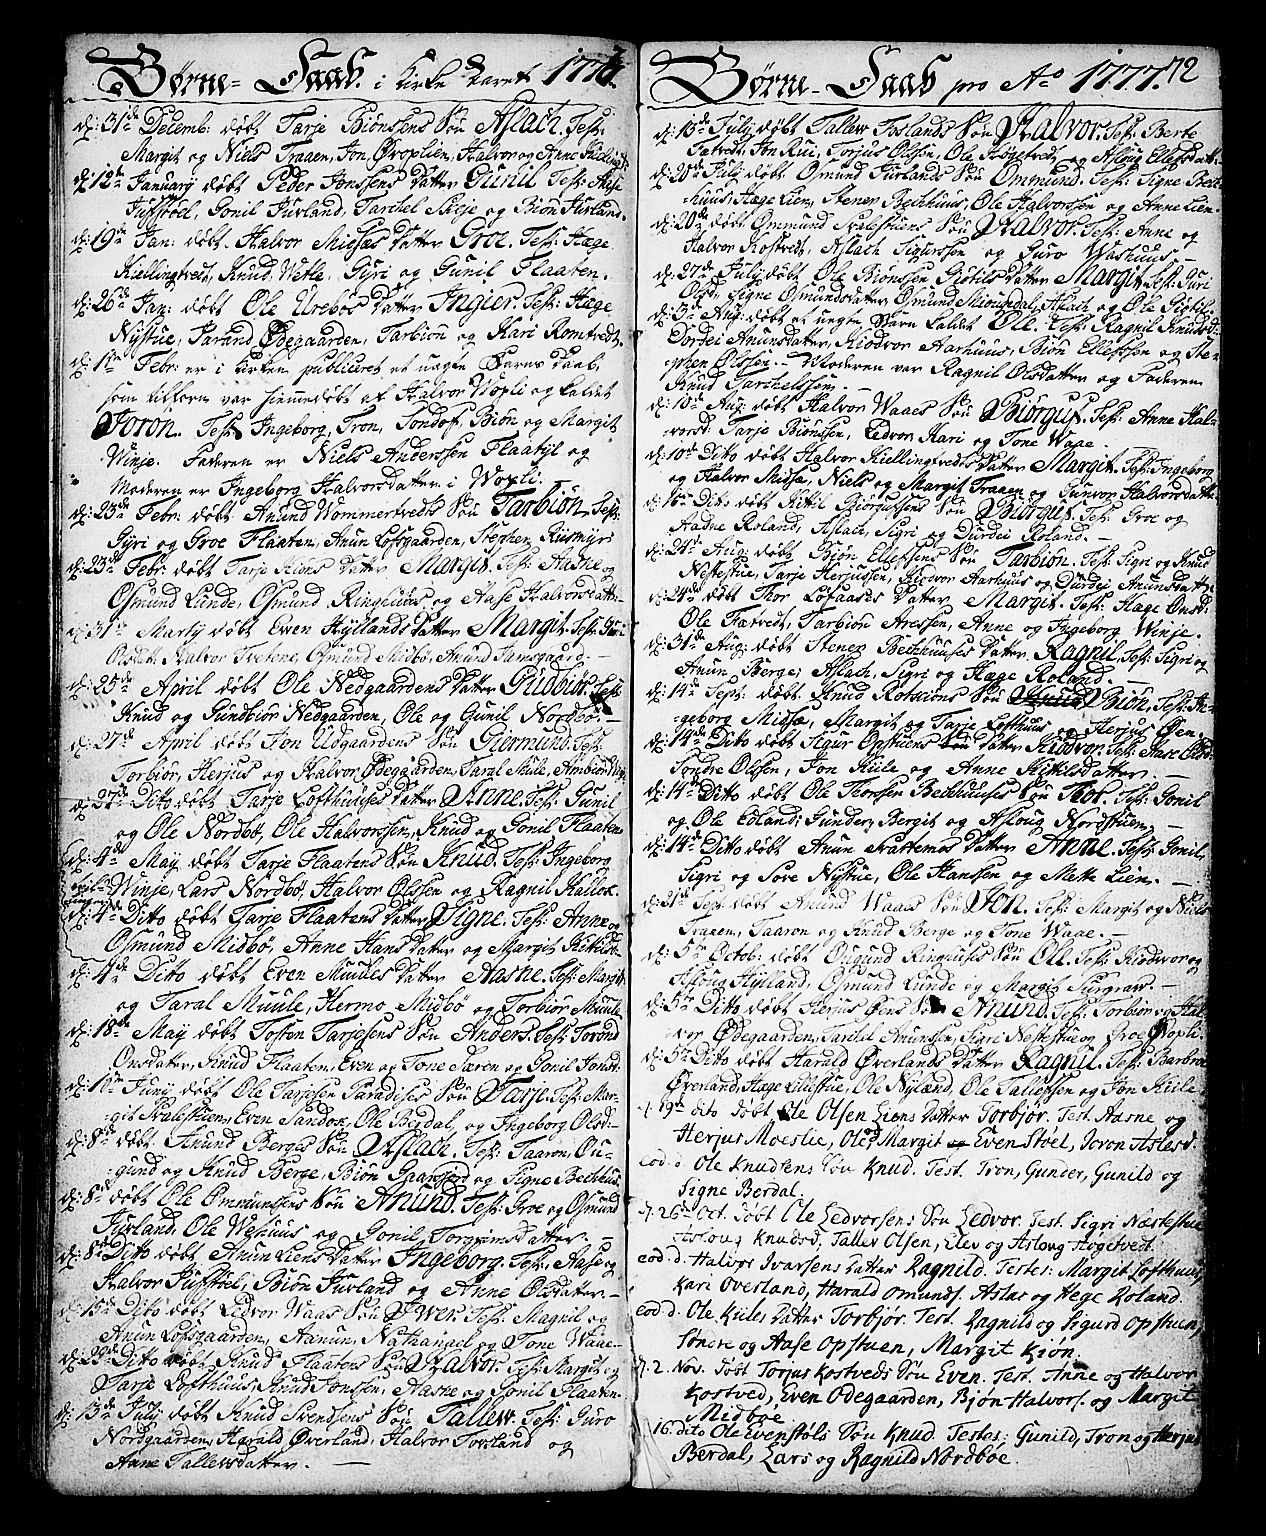 Børne-Daab. i Kirke Aaret 1777.
d: 31te Decemb: døbt Tarje Biønsens Søn Aslach. Test:
Margit og Niels Traaen, Jon Øvoplien, Halvor og Anne
d: 12te January døbt Peder Jonssens Datter Gunil Test: Aase
Juffstøel, Gonil Juvland, Tarchel Skeje og Biøn Juvland.
d: 19de Jan: døbt. Halvor Midsæs Datter Groe. Test: Hæge
Kiellingtvedt, Knud Vetle, Gyri og Gunil Flaaten.
d: 26de Jan: døbt Ole Urebøs Datter Ingier. Test: Hæge
Nystue, Tarand Ødegaarden, Tarbiøn og Kari Romtvedt
d: 11te Febr: er i Kirken publiceret et uægte Barns Daab,
som tilforn var hiemmedøbt af Halvor Vopli og kaldet
Joron. Test: Ingeborg, Tron, Sondof, Biøn og Margit
Winje. Faderen er Niels Anderssen Flaatyl og
Moderen er Ingeborg Halvorsdatter i Vopli.
d: 23de Febr: døbt Anund Wommertvedts Søn Tarbiøn. Test:
Gyri og Groe Flaaten, Anun Lofsgaarden, Stephen Ruismyr
d: 23de Febr: døbt Tarje Kions Datter Margit. Test: Aadne og
Osmund Lunde, Osmund Ringhuus, og Aase Halvorsdatt:
d: 31te Marty døbt Even Hyllands Datter Margit. Test: Guri
Olsdatt: Halvor Tvetene, Osmund Midbø, Anund Jamsgaard.
d: 25de April døbt Ole Nedgaardens Datter Gudbiør. Test:
Knud og Gundbiør Nedgaarden, Ole og Gunil Nordbø.
d: 27de April døbt Jon Udgaardens Søn Giermund. Test:
Torbiør, Herjus og Halvor Ødegaarden, Taral Mule, Ambiør
d: Ditto døbt Tarje Lofthuuses Datter Anne. Test: Gunil
og Ole Nordbø, Ole Halvorssen, Knud og Gonil Flaaten
d: 4de May døbt Tarje Flaatens Søn Knud. Test: Ingeborg
Winje, Lars Nordbø, Halvor Olssen og Ragnil Kallok.
d: 4de Ditto døbt Tarje Flaatens Datter Signe. Test: Anne og
Osmund Midbø, Anne Hansdatter og Margit Kittilsd:
d: 4de Ditto døbt Even Muules Datter Aasne. Test: Margit
og Taral Muule, Hermo Midbø og Torbiør Muule
d: 18de May døbt Tosten Tarjesens Søn Anders. Test: Torond
Onsdatter, Knud Flaaten, Even og Tone Særen og Gonil Jonsd:
d: 1ste Juny døbt Ole Tarjesen Paradises Søn Tarje. Test: Mar-
git Svalestuen, Even Sandok, Ole Berdal, og Ingeborg Olsd:
d: 8de døbt Anund Berges Søn Aslach. Test: Taaron, Ou-
gund og Knud Berge, Biøn Gaarsjord og Signe Bechhuus
d: 8de døbt Ole Ommundsens Søn Anund. Test: Groe og Osmund
Juvland, Ole Weshuus og Gonil Torgrimsdatter.
d: 8de Ditto døbt Anun Liens Datter Ingeborg. Test: Aase og
Halvor Juffstøel, Biøn Juvland og Anne Olsdatter.
d: 15de Ditto døbt Ledvor Waas Søn Iwer. Test: Magnil og
Anun Lofsgaarden, Aanun, Nathanael og Tone Waae.
d: 29de Ditto døbt Knud Flaatens Søn Halvor. Test: Margit og
Tarje Lofthuus, Knud Jonssen, Aasne og Gonil Flaaten.
d: 13de July døbt Knud Svendsens Søn Tallew. Test: Guro
Nordgaarden, Harald Øverland, Halvor Torsland og
Anne Tallewsdatter.
Børne-Daab pro Ao 1777. 72
d: 13de July døbt Tallew Toslands Søn Halvor. Test: Berte
Tætvedt, Jon Rui, Torjus Olssen, Ole Høgetvedt, og Asloug Ellefsdatt:
d: 20de July døbt Osmund Juvlands Søn Ommund. Test: Signe Bech-
huus, Hæge Lien, Stener Bechhuus, Ole Halvorssen og Anne Lien.
d: 20de døbt Ommund Svalestuens Søn Halvor. Test: Anne og
Halvor Kostvedt, Aslach Sigurssen og Guro Washuus.
d: 27de July døbt Ole Biønssen Giøtils Datter Margit. Test: Guri
Olsd, Signe Osmundsdatter, Osmund Mandal, Aslach og Ole Giøtil.
d: 3die Aug: døbt et uægte Barn kaldet Ole. Test: Ragnil Knudsd:
Dordei Anunsdatter, Kiodvor Aarhuus, Biøn Ellefssen og Ste-
phen Olssen. Moderen var Ragnil Olsdatter og Faderen
Knud Tarchelssen.
d: 10de Aug: døbt Halvor Waaes Søn Biørguf. Test: Anne Hal-
vorsd: Tarje Biønssen, Ledvor, Kari og Tone Waae.
d: 10de Ditto døbt Halvor Kiellingtvedts Datter Margit. Test: Ingeborg
og Halvor Midsæ, Niels og Margit Traaen og Gunvor Halvorsdatt:
d: Ditto døbt Kittil Biørgussens Søn Biørguf. Test: Groe og
Aadne Roland, Aslach, Sigri og Durdei Roland.
d: 24de Aug: døbt Biøn Ellefsens Søn Tarbiøn. Test: Sigri og Knud
Nestestue, Tarje Herjussen, Kiodvor Aarhuus og Durdei Anunsdatter
d: 24de døbt Thor Lofaases Datter Margit. Test: Hæge Onsd:
Ole Tætvedt, Tarbiøn Aressen, Anne og Ingeborg Winje.
d: 31te Aug: døbt Stener Bechhuuses Datter Ragnil. Test: Sigri og
Anun Berge, Aslach, Sigri og Hæge Roland.
d: 14de Sept: døbt Knud Søn Biøn. Test: In-
geborg Midsæ, Margit og Tarje Lofthuus og Herjus Øen.
d: 14de Ditto døbt Sigur Opstuens Datter Kiødvor. Test: Anne Olsd:
Sondre Olssen, Jon Kiile og Anne Kittilsdatter.
d: 14de Ditto døbt Ole Thorssen Bechhuuses Søn Thor. Test: Gonil
og Ole Edland, Gunder, Bergit og Asloug Nordstuen.
d: 14de Ditto døbt Anun Datter Anne. Test: Gonil,
Sigri og Tore Nystue, Ole Hanssen og Mette Lien.
d: 21de Sept døbt Anund Waaes Søn Jon. Test: Margit og Niels
Traaen, Taaron og Knud Berge og Tone Waae.
d: 5te Octob: døbt Ougund Ringhuses Søn Ole. Test: Kiodvor og
Asloug Hylland, Osmund Lunde og Margit Surgraw.
d: 5te Ditto døbt Herjus Øens Søn Anund. Test: Torbiør og Hal-
vor Ødegaarden, Tarchel Anunssen, Sigri Nestestue og Groe Vopli.
d: 5te Ditto døbt Harald Øverlands Datter Ragnil. Test: Barbroe
Øverland, Hæge Lillestue, Ole Nyland, Ole Tallefssen og Jon Kiile
d. 19de dito døbt Ole Olsen Liens Datter Torbjør. Test. Aasne og
Herjus Moeslie, Ole og Margit Even Støel, Joron Aslesd.
eod. d. Ole Knudsens Søn Knud. Test. Tron, Guneer, Gunild og
Signe Berdal.
d. 26de Oct. døbt Ole Ledvorsens Søn Ledvor. Test. Sigri Næstestue
Aslaug Knudsd, Tallev Olsen, Elev og Aslaug Høgetvedt.
eod. d. Halvor Ivarsens Datter Ragnild. Testes: Margit Lofthuus,
Kari Overland, Harald Omunds. Aslac og Hege Roland.
eod d. Ole Kiles Datter Torbjør. Test. Ragnild og Sigurd Opstuen,
Søncre og Aase Opstuen, Margit Kiøn.
d. 2. Nov. døbt Torjus Kostveds Søn Even. Test. Anne og Halvor
Kostved, Even Odegaarden, Bjøn Halvors. og Margit
Midbøe
16. dito Ole Evenstøls Søn Knud. Testes: Gunild, Tron og Herjus
Berdal, Lars og Ragnild Nordbøe.